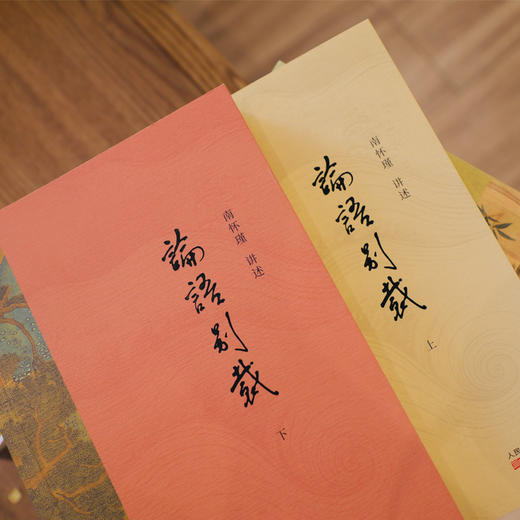 論語別裁
南怀瑾 讲述
下
論語別裁
南怀瑾 讲述
上
人民